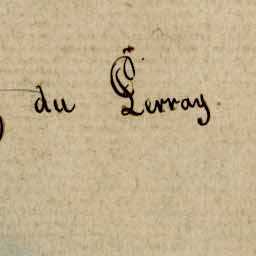 du Perray